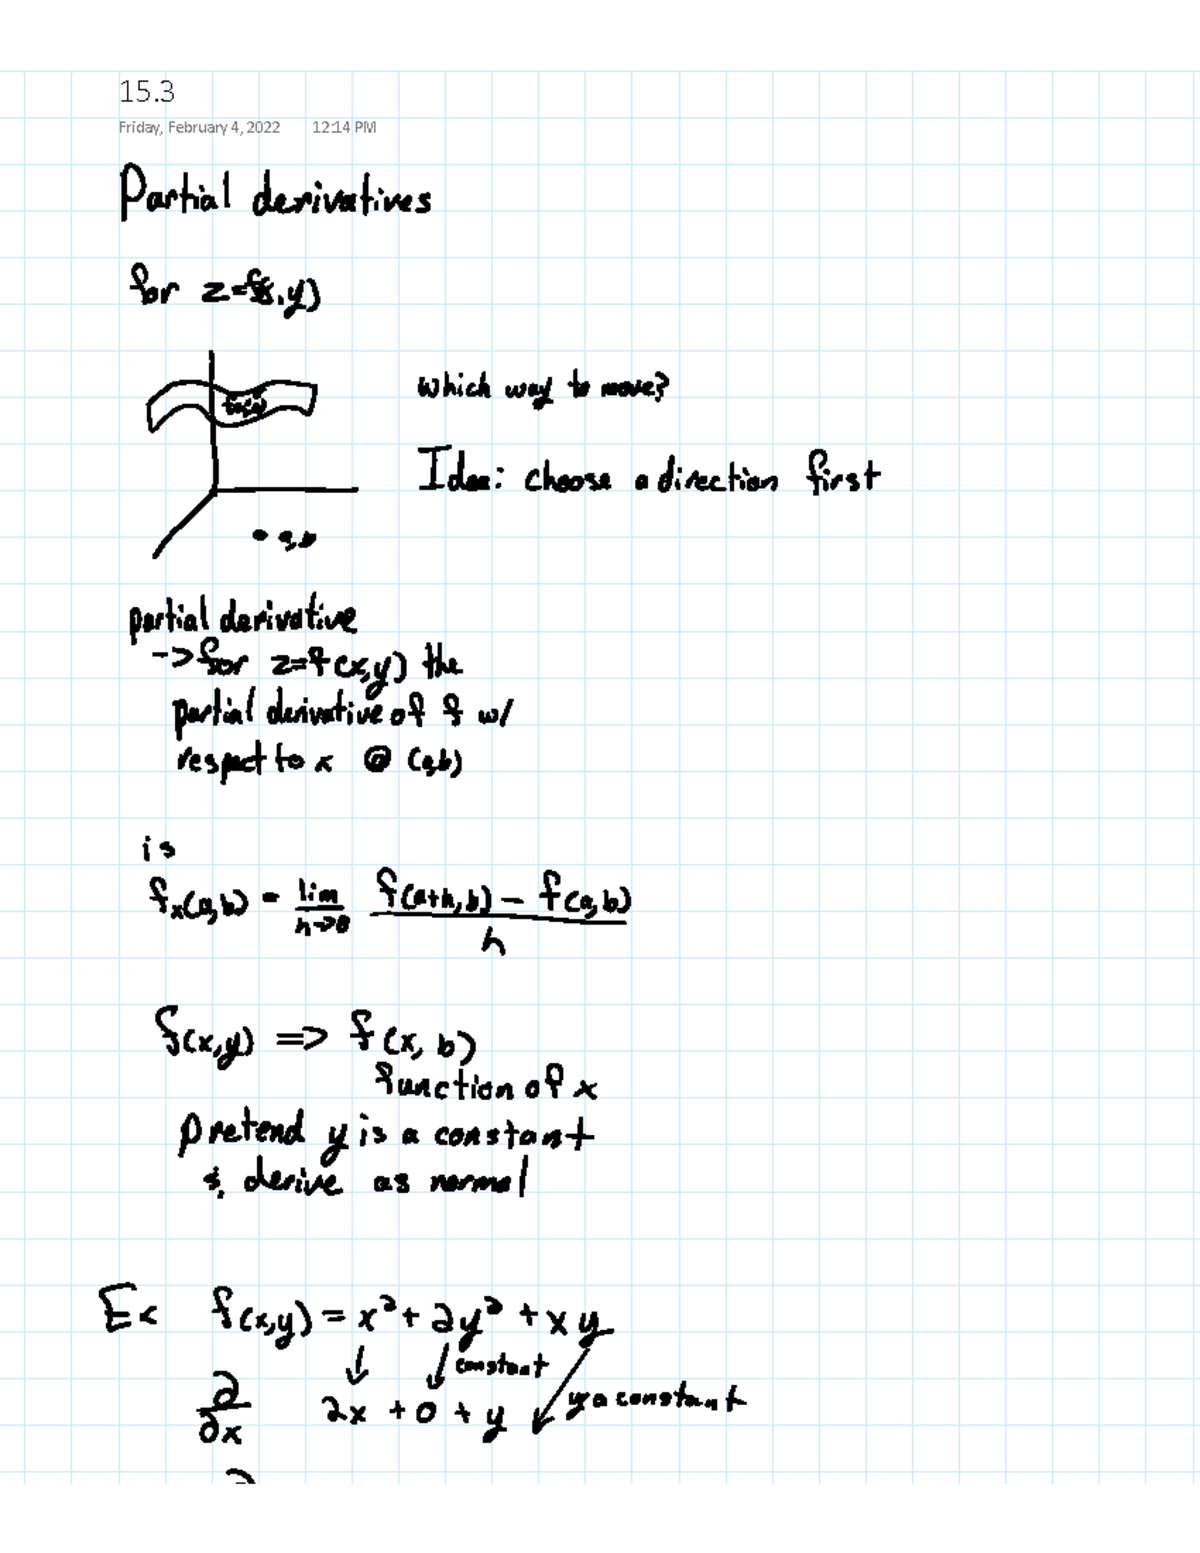 15.3
Friday, February 4, 2022 12:14 PM
Partial derivatives
for z=f(x,y)
which way to move?
Idea: choose a direction first
a,b
partial derivative
-> for z=f(x,y) the
partial derivative of f w/
respect to x @ (a,b)
is
fx(a,b) = lim h->0 f(a+h,b) - f(a,b) / h
f(x,y) => f(x, b)
function of x
pretend y is a constant
&, derive as normal
Ex f(x,y) = x² + 2y² + xy
constant
y a constant
∂/∂x 2x + 0 + y
∂